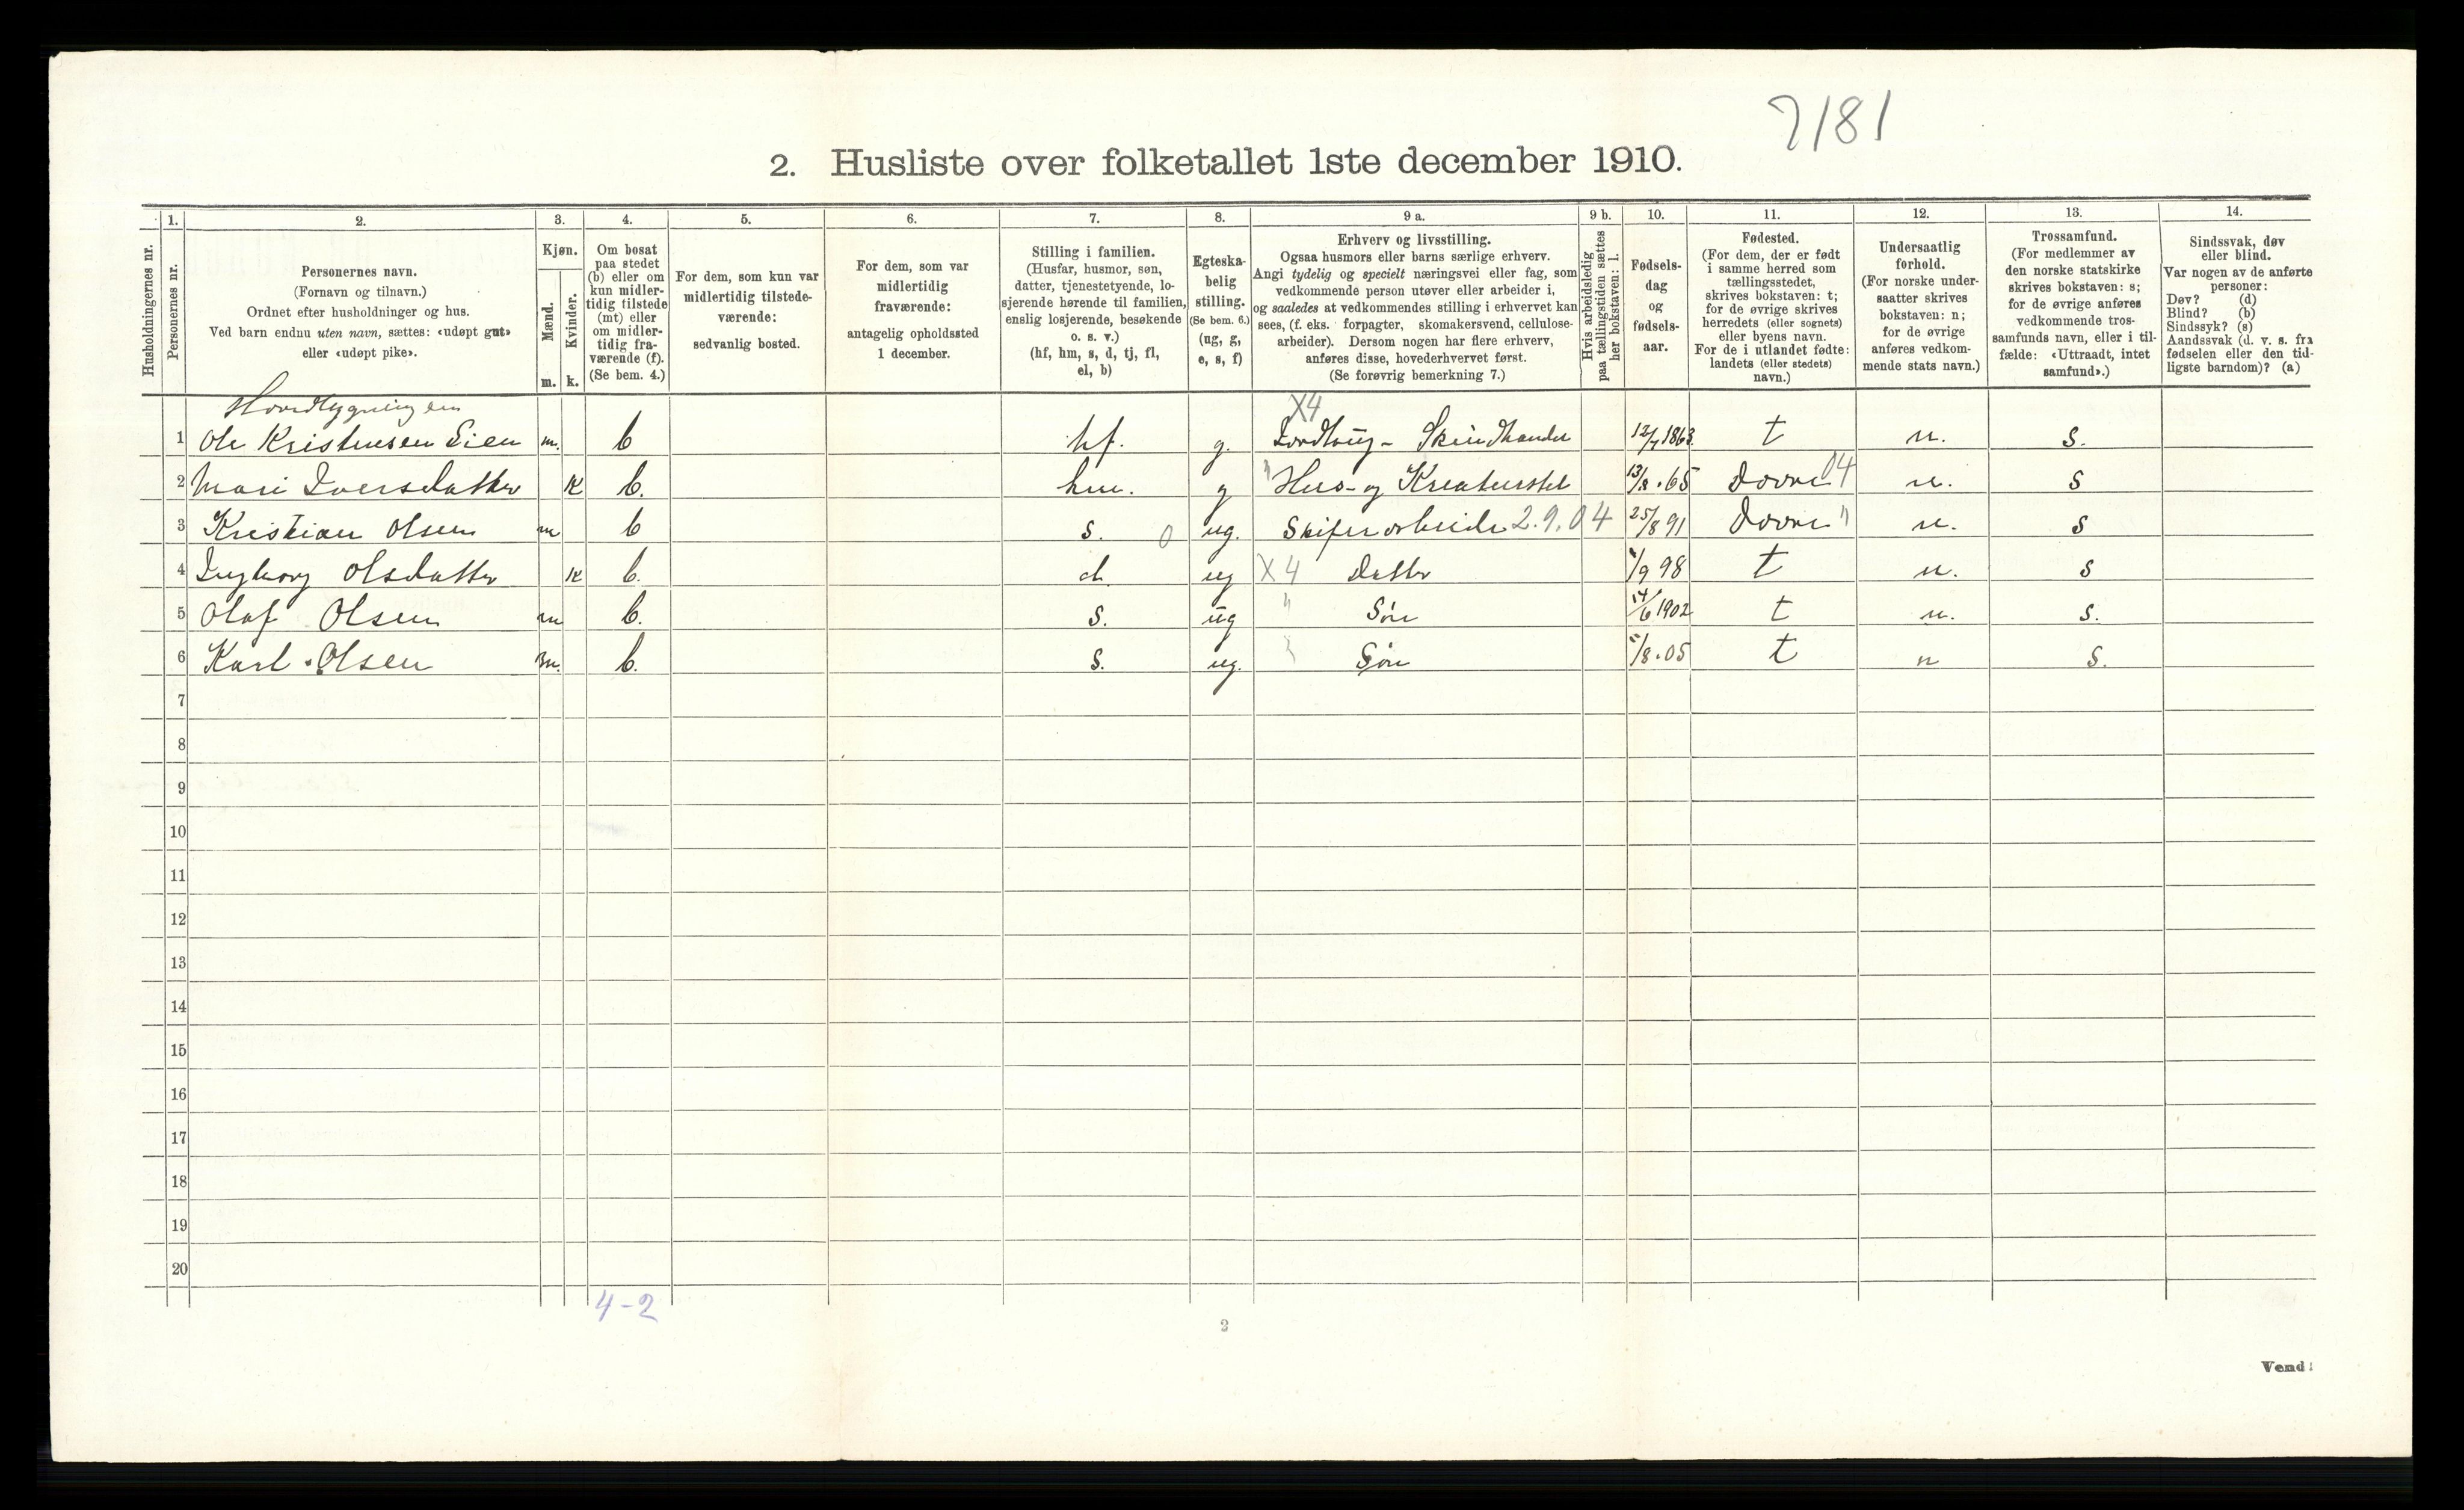 7181
2. Husliste over folketallet 1ste december 1910.
Husholdningernes nr.
1. Personernes nr.
2. Personernes navn.
(Fornavn og tilnavn.)
Ordnet efter husholdninger og hus.
Ved barn endnu uten navn, sættes: «udøpt gut»
eller «udøpt pike».
3. Kjøn.
Mænd. m.
Kvinder. k.
4. Om bosat
paa stedet
(b) eller om
kun midler-
tidig tilstede
(mt) eller
om midler-
tidig fra-
værende (f).
(Se bem. 4.)
5. For dem, som kun var
midlertidig tilstede-
værende:
sedvanlig bosted.
6. For dem, som var
midlertidig
fraværende:
antagelig opholdssted
1 december.
7. Stilling i familien.
(Husfar, husmor, søn,
datter, tjenestetyende, lo-
sjerende hørende til familien,
enslig losjerende, besøkende
o. s. v.)
(hf, hm, s, d, tj, fl,
el, b)
8. Egteska-
belig
stilling.
(Se bem. 6.)
(ug, g,
e, s, f)
9 a. Erhverv og livsstilling.
Ogsaa husmors eller barns særlige erhverv.
Angi tydelig og specielt næringsvei eller fag, som
vedkommende person utøver eller arbeider i,
og saaledes at vedkommendes stilling i erhvervet kan
sees, (f. eks. forpagter, skomakersvend, cellulose-
arbeider). Dersom nogen har flere erhverv,
anføres disse, hovederhvervet først.
(Se forøvrig bemerkning 7.)
9 b. Hvis arbeidsledig
paa tællingstiden sættes
her bokstaven: l.
10. Fødsels-
dag
og
fødsels-
aar.
11. Fødested.
(For dem, der er født
i samme herred som
tællingsstedet,
skrives bokstaven: t;
for de øvrige skrives
herredets (eller sognets)
eller byens navn.
For de i utlandet fødte:
landets (eller stedets)
navn.)
12. Undersaatlig
forhold.
(For norske under-
saatter skrives
bokstaven: n;
for de øvrige
anføres vedkom-
mende stats navn.)
13. Trossamfund.
(For medlemmer av
den norske statskirke
skrives bokstaven: s;
for de øvrige anføres
vedkommende tros-
samfunds navn, eller i til-
fælde: «Uttraadt, intet
samfund».)
14. Sindssvak, døv
eller blind.
Var nogen av de anførte
personer:
Døv? (d)
Blind? (b)
Sindssyk? (s)
Aandssvak (d. v. s. fra
fødselen eller den tid-
ligste barndom)? (a)
Hovedbygningen
X4
1 Ole Kristensen Lien m. b hf. g. Skindhandler 12/7 1863. t n. s.
2 Mari Iversdatter k b. hm. g " Hus- og Kreaturstel 13/8 . 65 Dovre 04 n. s
3 Kristian Olsen m b s. 0 ug. Skiferarbeider 2.9.04 25/8 91 Dovre " n. s
4 Ingborg Olsdatter k b. d. ug X4 Datter /9 98 t n. s
5 Olaf Olsen m b. s. ug " Søn 14/6 1902 t n. s.
6 Karl Olsen m. b. s. ug. " Søn /8 . 05 t n s.
7
8
9
10
11
12
13
14
15
16
17
18
19
20
4-2
2
Vend!